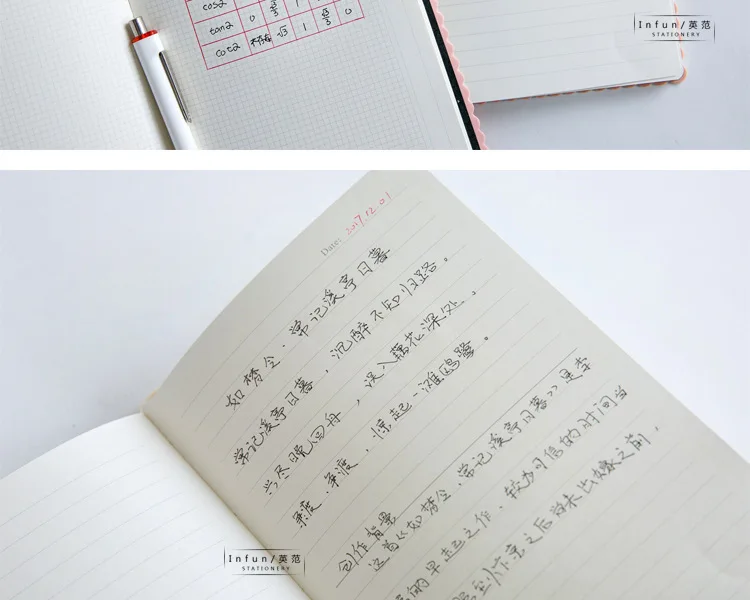 cos2
tan2 0 √3/3 1 √3/3 0
cot2 不存在 √3 1
Infun/英范
STATIONERY
Date: 2017.12.01
如梦令·常记溪亭日暮
常记溪亭日暮，沉醉不知归路。
兴尽晚回舟，误入藕花深处。
争渡，争渡，惊起一滩鸥鹭。
创作背景
这首《如梦令·常记溪亭日暮》是李
的早起之作，较为可信的时间当
到汴京之后尚未出嫁之前，
Infun/英范
STATIONERY